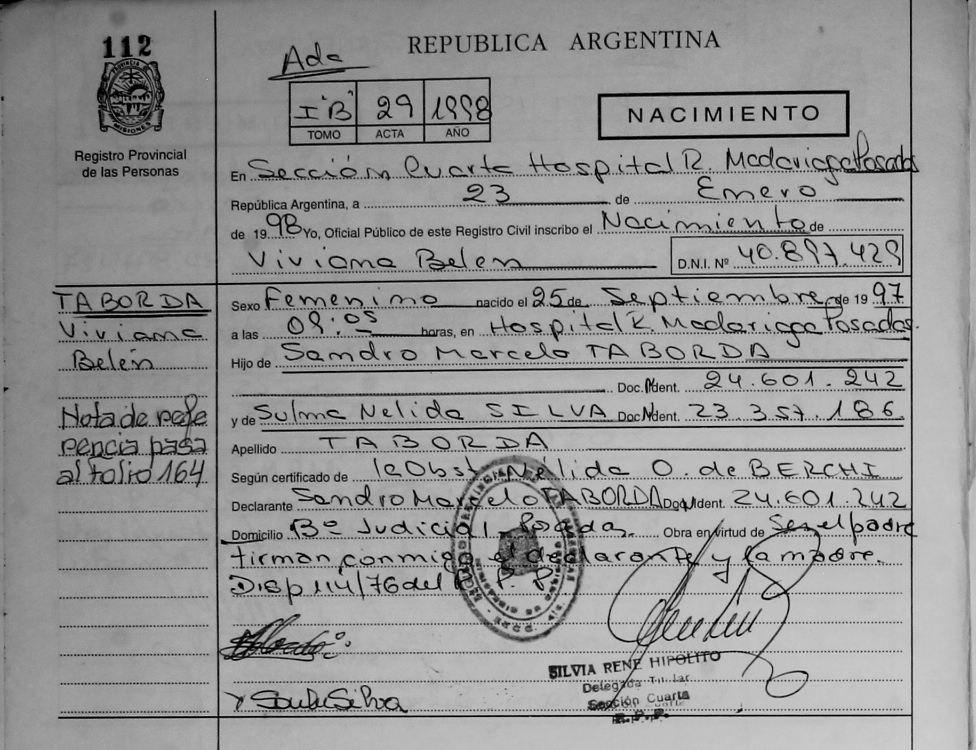 112
PROVINCIA DE
MISIONES
Registro Provincial
de las Personas
Ada
REPUBLICA ARGENTINA
I "B" 29 1998
TOMO ACTA AÑO
NACIMIENTO
En Sección Cuarta Hospital R. Madariaga Posadas
República Argentina, a 23 de Enero
de 1998 Yo, Oficial Público de este Registro Civil inscribo el Nacimiento de
Viviana Belen D.N.I. Nº 40.897.429
TABORDA
Viviana
Belén
Nota de refe
rencia pasa
al folio 164
Sexo Femenino nacido el 25 de Septiembre de 1997
a las 09:05 horas, en Hospital R. Madariaga Posadas.
Hijo de Sandro Marcelo TABORDA
Doc. Ident. 24.601.242
y de Sulma Nelida SILVA Doc. Ident. 23.357.186
Apellido TABORDA
Según certificado de la Obst. Nélida O. de BERCHI
Declarante Sandro Marcelo TABORDA Doc. Ident. 24.601.242
Domicilio Bº Judicial, Posadas. Obra en virtud de Ser el padre
firman conmigo el declarante y la madre.
Disp 114/76 del R. P. P.
SILVIA RENE HIPOLITO
Delegada Titular
Sección Cuarta
R. P. P.
Silva